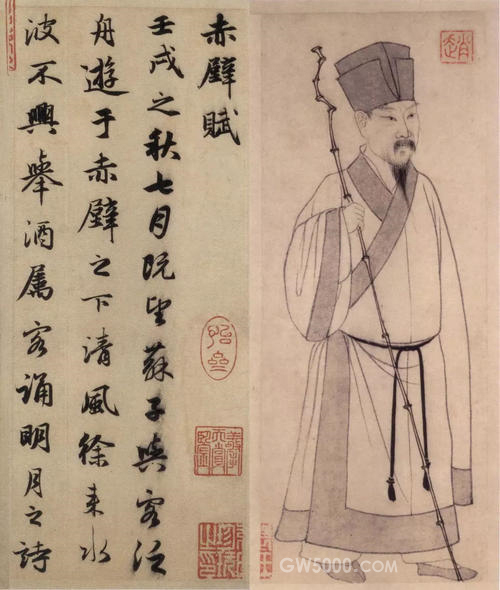 赤壁賦
壬戌之秋七月既望蘇子與客泛
舟遊于赤壁之下清風徐來水
波不興舉酒属客誦明月之詩
趙
GW5000.com